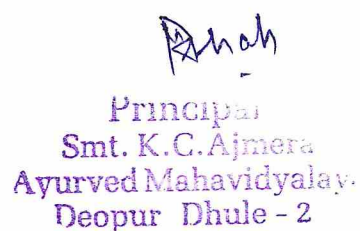 Principal
Smt. K.C. Ajmera
Ayurved Mahavidyalay
Deopur Dhule - 2